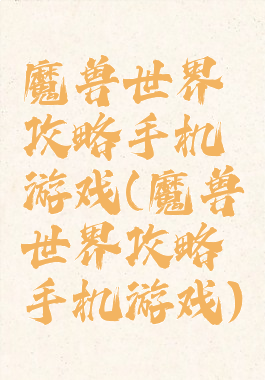 魔兽世界
攻略手机
游戏(魔兽
世界攻略
手机游戏)